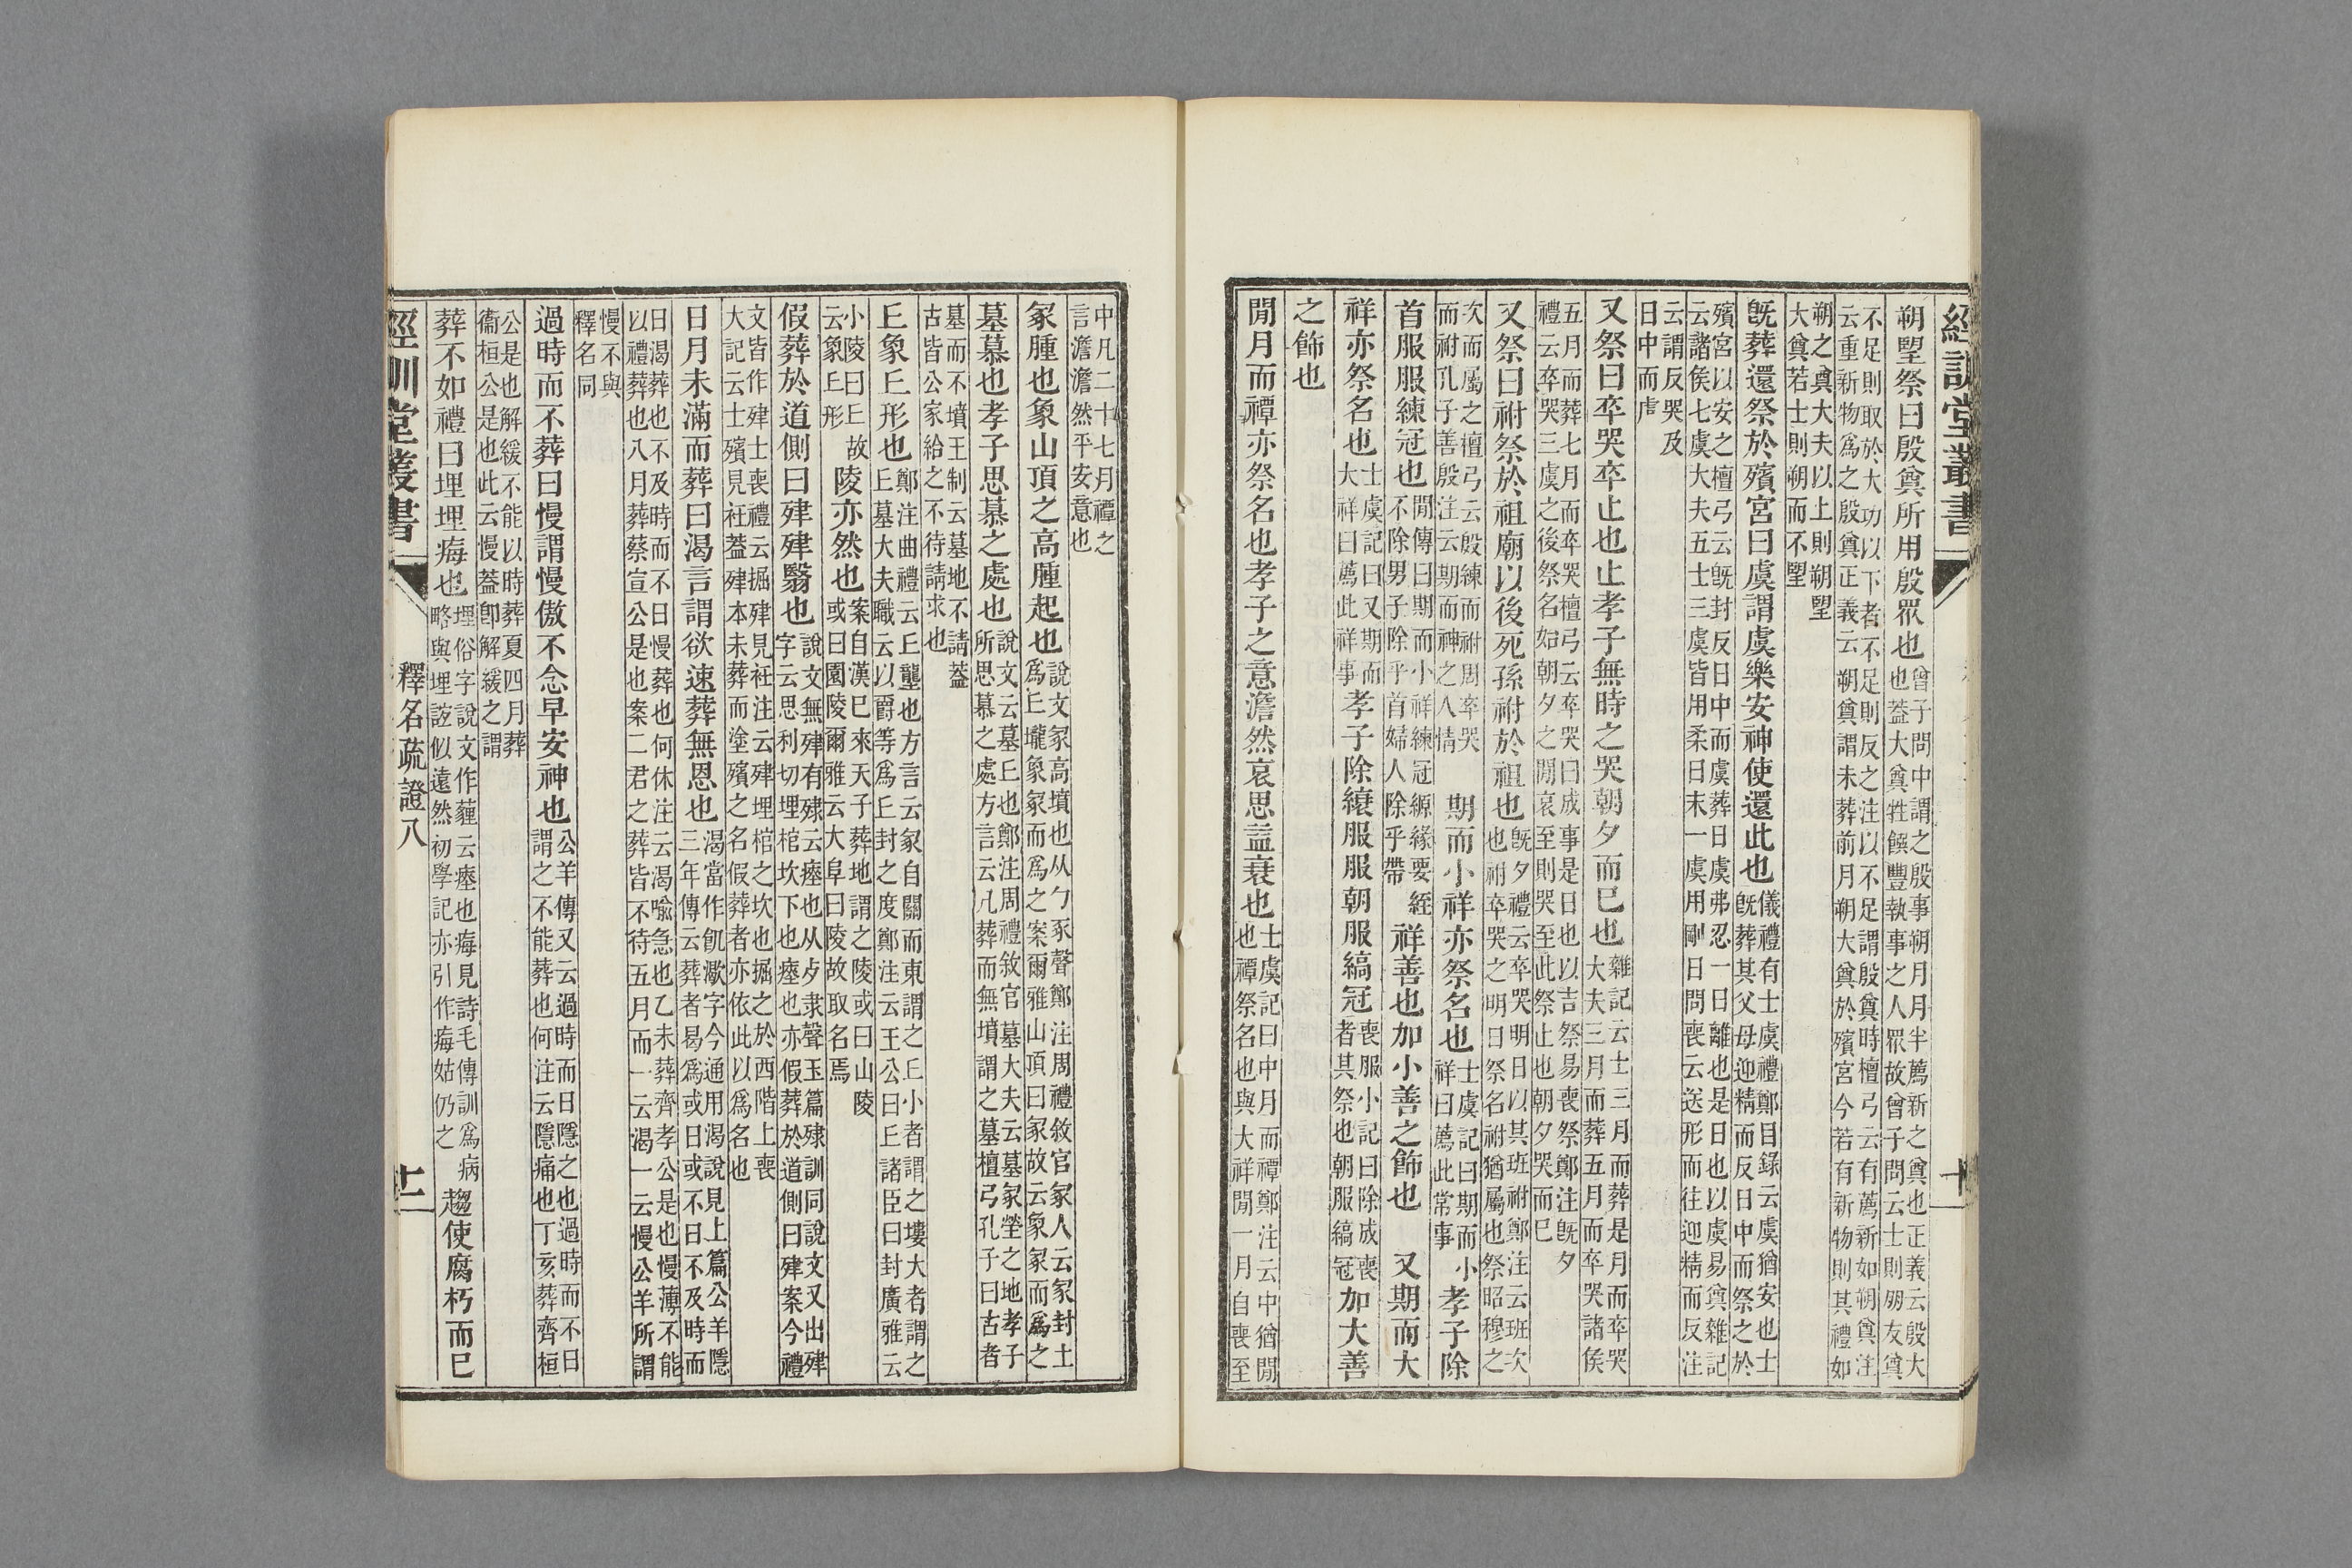 經訓堂叢書
十
朔望祭曰殷奠所用殷眾也曾子問中謂之殷事朔月月半薦新之奠也正義云殷大
也葢大奠牲饌豐執事之人眾故曾子問云士則朋友奠
不足則取於大功以下者不足則反之注以不足謂殷奠時檀弓云有薦新如朔奠注
云重新物爲之殷奠正義云朔奠謂未葬前月朔大奠於殯宮今若有新物則其禮如
朔之奠大夫以上則朔望
大奠若士則朔而不望
旣葬還祭於殯宮曰虞謂虞樂安神使還此也儀禮有士虞禮鄭目錄云虞猶安也士
旣葬其父母迎精而反日中而祭之於
殯宮以安之檀弓云旣封反日中而虞葬日虞弗忍一日離也是日也以虞易奠雜記
云諸侯七虞大夫五士三虞皆用柔日末一虞用剛日問喪云送形而往迎精而反注
云謂反哭及
日中而虞
又祭曰卒哭卒止也止孝子無時之哭朝夕而巳也雜記云士三月而葬是月而卒哭
大夫三月而葬五月而卒哭諸侯
五月而葬七月而卒哭檀弓云卒哭曰成事是日也以吉祭易喪祭鄭注旣夕
禮云卒哭三虞之後祭名始朝夕之閒哀至則哭至此祭止也朝夕哭而巳
又祭曰祔祭於祖廟以後死孫祔於祖也旣夕禮云卒哭明日以其班祔鄭注云班次
也祔卒哭之明日祭名祔猶屬也祭昭穆之
次而屬之檀弓云殷練而祔周卒哭
而祔孔子善殷注云期而神之人情
期而小祥亦祭名也士虞記曰期而小
祥曰薦此常事孝子除
首服服練冠也閒傳曰期而小祥練冠縓緣要絰
不除男子除乎首婦人除乎帶祥善也加小善之飾也
又期而大
祥亦祭名也士虞記曰又期而
大祥曰薦此祥事孝子除縗服服朝服縞冠喪服小記曰除成喪
者其祭也朝服縞冠加大善
之飾也
閒月而禫亦祭名也孝子之意澹然哀思益衰也士虞記曰中月而禫鄭注云中猶閒
也禫祭名也與大祥閒一月自喪至
中凡二十七月禫之
言澹澹然平安意也
冢腫也象山頂之高腫起也說文冢高墳也从勹豖聲鄭注周禮敘官冢人云冢封土
爲丘壠象冢而爲之案爾雅山頂曰冢故云象冢而爲之
墓慕也孝子思慕之處也說文云墓丘也鄭注周禮敘官墓大夫云墓冢塋之地孝子
所思慕之處方言云凡葬而無墳謂之墓檀弓孔子曰古者
墓而不墳王制云墓地不請葢
古皆公家給之不待請求也
丘象丘形也鄭注曲禮云丘壟也方言云冢自關而東謂之丘小者謂之塿大者謂之
丘墓大夫職云以爵等爲丘封之度鄭注云王公曰丘諸臣曰封廣雅云
小陵曰丘故
云象丘形
陵亦然也案自漢巳來天子葬地謂之陵或曰山陵
或曰園陵爾雅云大阜曰陵故取名焉
假葬於道側曰肂肂翳也說文無肂有殔云瘞也从歺隶聲玉篇殔訓同說文又出肂
字云思利切埋棺坎下也瘞也亦假葬於道側曰肂案今禮
文皆作肂士喪禮云掘肂見衽注云肂埋棺之坎也掘之於西階上喪
大記云士殯見衽葢肂本未葬而塗殯之名假葬者亦依此以爲名也
日月未滿而葬曰渴言謂欲速葬無恩也渴當作㵣字今通用渴說見上篇公羊隱
三年傳云葬者曷爲或日或不日不及時而
日渴葬也不及時而不日慢葬也何休注云渴喻急也乙未葬齊孝公是也慢薄不能
以禮葬也八月葬蔡宣公是也案二君之葬皆不待五月而一云渴一云慢公羊所謂
慢不與
釋名同
過時而不葬曰慢謂慢傲不念早安神也公羊傳又云過時而日隱之也過時而不日
謂之不能葬也何注云隱痛也丁亥葬齊桓
公是也解緩不能以時葬夏四月葬
衞桓公是也此云慢葢卽解緩之謂
葬不如禮曰埋埋痗也埋俗字說文作薶云瘞也痗見詩毛傳訓爲病
略與埋誼似遠然初學記亦引作痗姑仍之趨使腐朽而巳
經訓堂叢書
釋名疏證八
十一